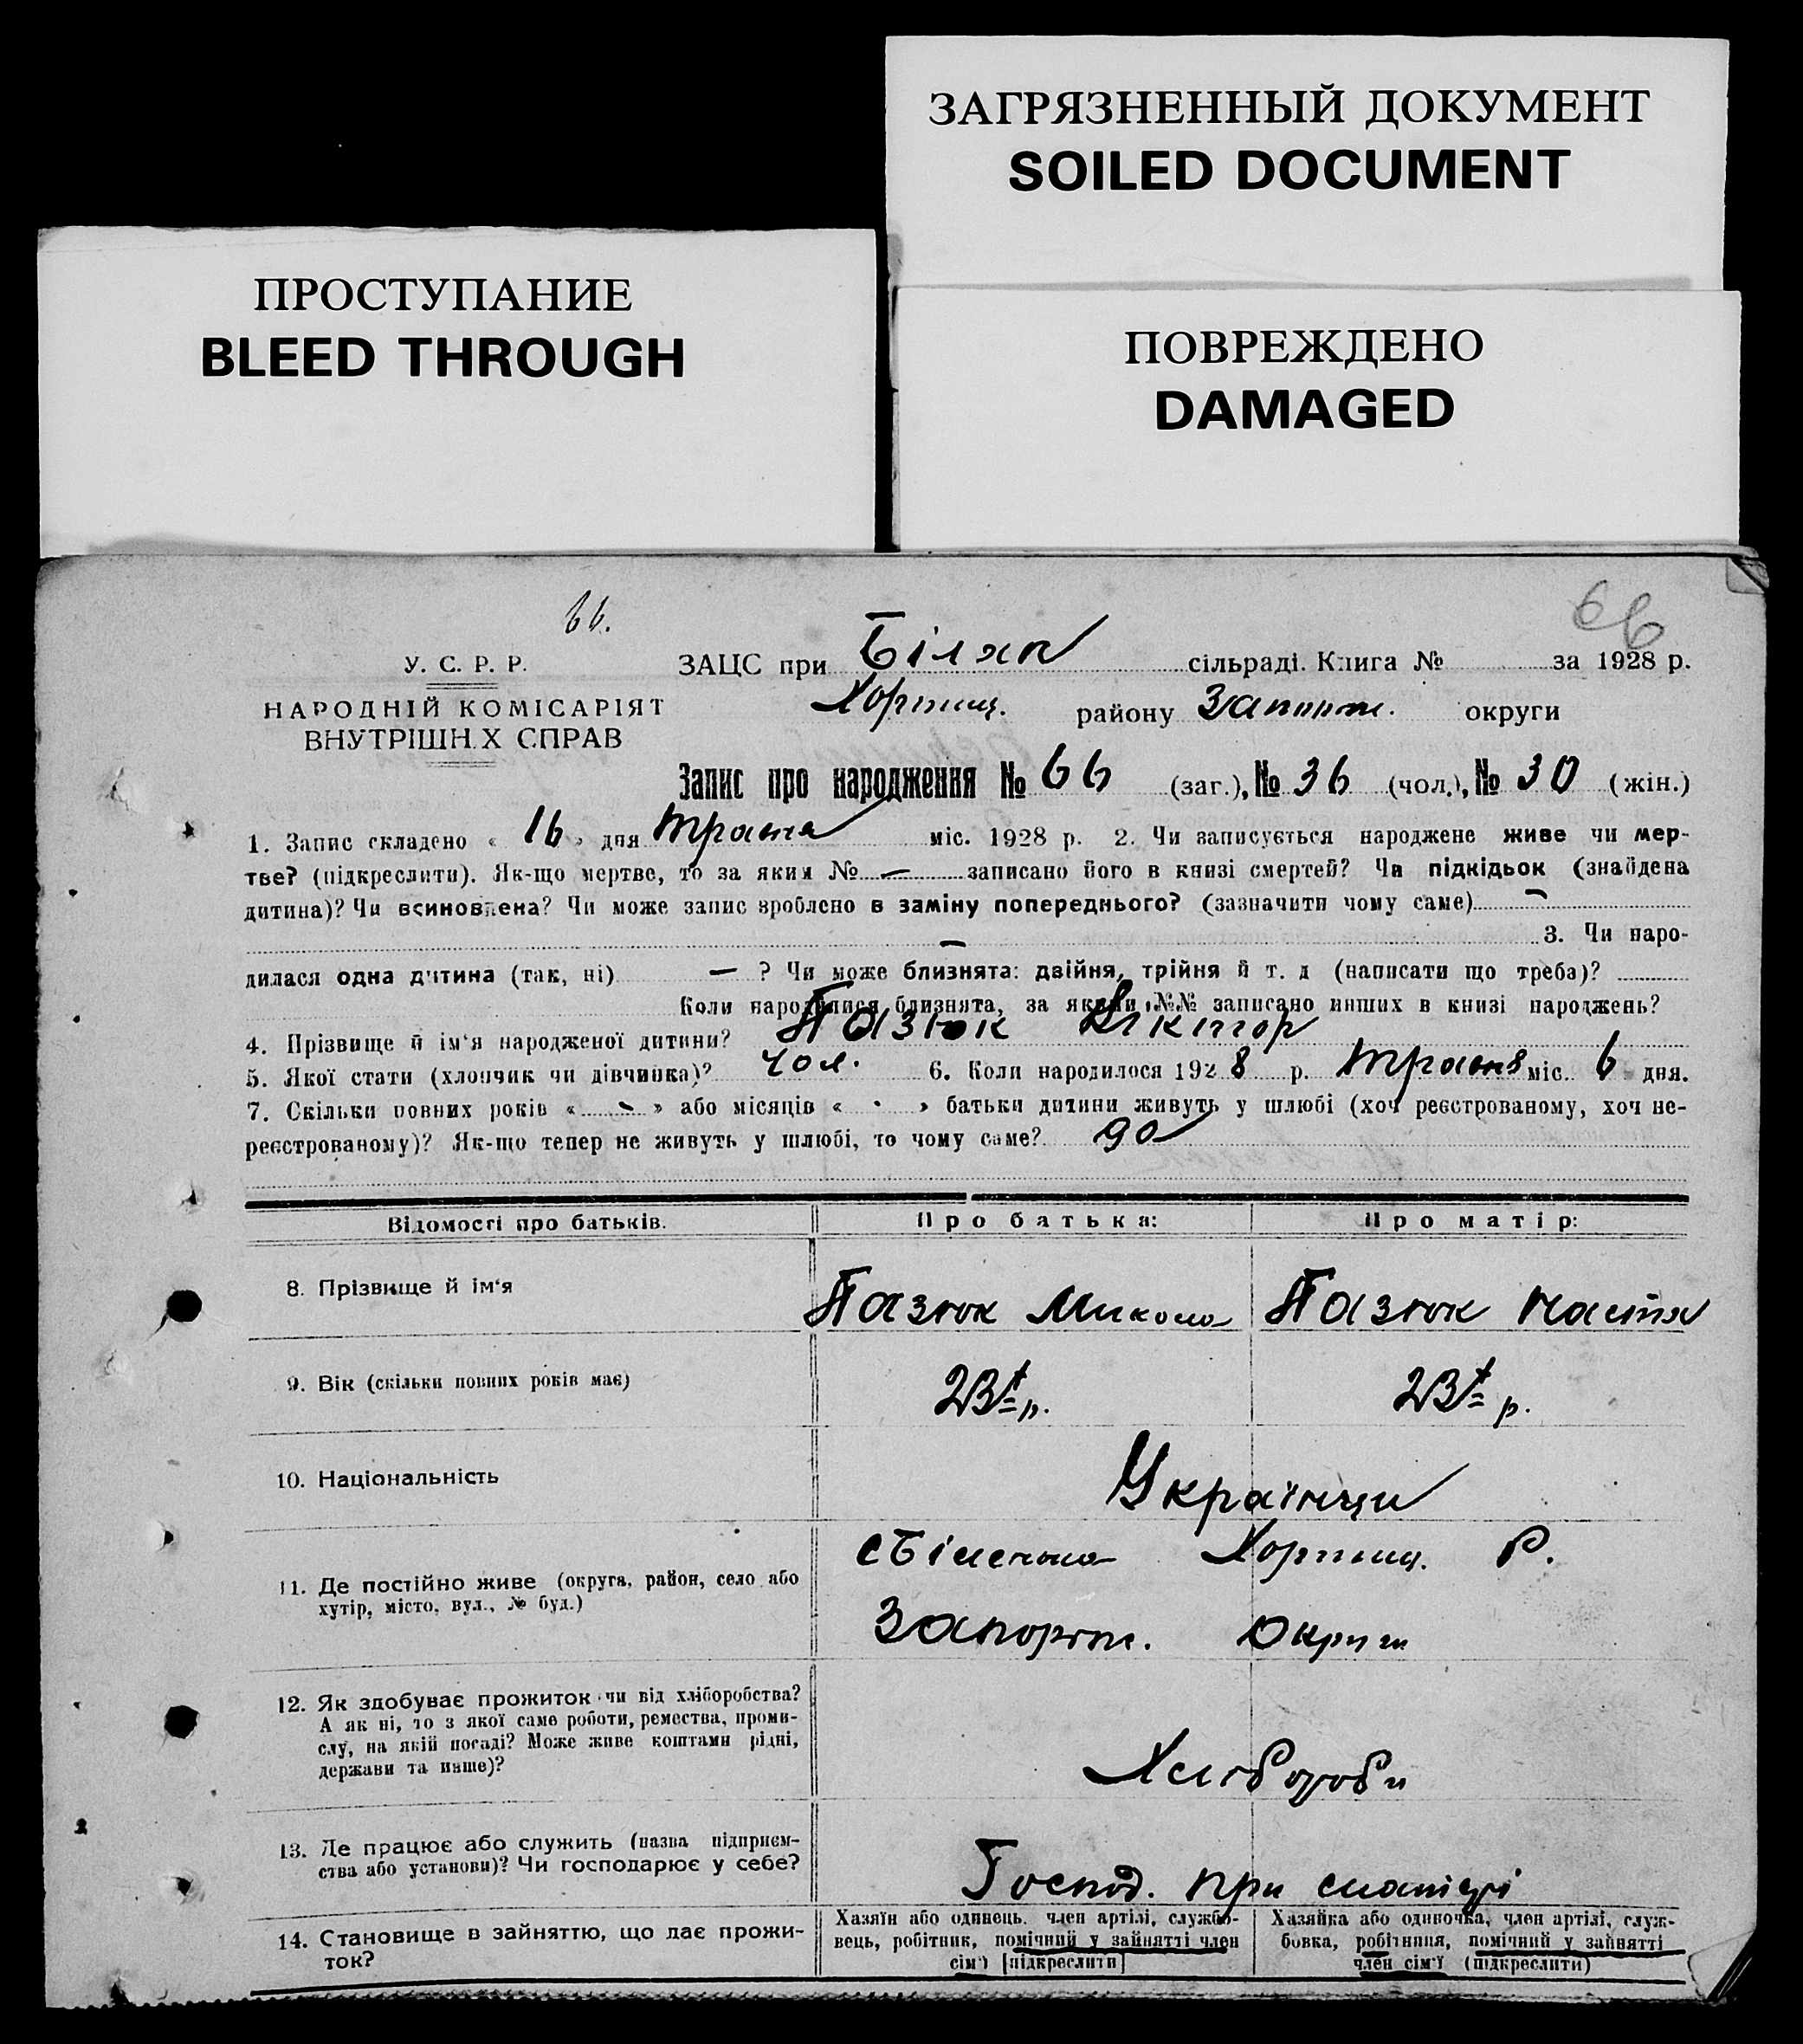 ЗАГРЯЗНЕННЫЙ ДОКУМЕНТ
SOILED DOCUMENT
ПРОСТУПАНИЕ
BLEED THROUGH
ПОВРЕЖДЕНО
DAMAGED
66.
66
У. С. Р. Р.
НАРОДНІЙ КОМІСАРІЯТ
ВНУТРІШН.Х СПРАВ
ЗАЦС при Білян сільраді. Книга № за 1928 р.
Хортиц. району Запорож. округи
Запис про народження № 66 (заг.), № 36 (чол.), № 30 (жін.)
1. Запис складено « 16 » дня травня міс. 1928 р. 2. Чи записується народжене живе чи мер-
тве? (підкреслити). Як-що мертве, то за яким № — записано його в книзі смертей? Чи підкідьок (знайдена
дитина)? Чи всиновлена? Чи може запис зроблено в заміну попереднього? (зазначити чому саме) —
— 3. Чи наро-
дилася одна дитина (так, ні) — ? Чи може близнята: двійня, трійня й т. д (написати що треба)?
Коли народилися близнята, за якими №№ записано инших в книзі народжень?
4. Прізвище й ім'я народженої дитини? Пазюк Віктор
5. Якої стати (хлопчик чи дівчинка)? чол. 6. Коли народилося 1928 р. травня міс. 6 дня.
7. Скільки повних років « - » або місяців « · » батьки дитини живуть у шлюбі (хоч реєстрованому, хоч не-
реєстрованому)? Як-що тепер не живуть у шлюбі, то чому саме?
Відомості про батьків.
Про батька:
Про матір:
8. Прізвище й ім'я
Пазюк Микола
Пазюк Настя
9. Вік (скільки повних років має)
23 р.
23 р.
10. Національність
Українци
11. Де постійно живе (округа, район, село або
хутір, місто, вул., № буд.)
с Біленька Хортиц. Р.
Запорож. Округи
12. Як здобуває прожиток чи від хліборобства?
А як ні, то з якої саме роботи, ремества, проми-
слу, на якій посаді? Може живе коштами рідні,
держави та инше)?
Хлібороби
13. Де працює або служить (назва підприєм-
ства або установи)? Чи господарює у себе?
Господ. при
14. Становище в зайняттю, що дає прожи-
ток?
Хазяїн або одинець. член артілі, службо-
вець, робітник, помічний у зайнятті член
сім'ї [підкреслити]
Хазяйка або одиночка, член артілі, служ-
бовка, робітниця, помічний у зайнятті
член сім'ї (підкреслити)